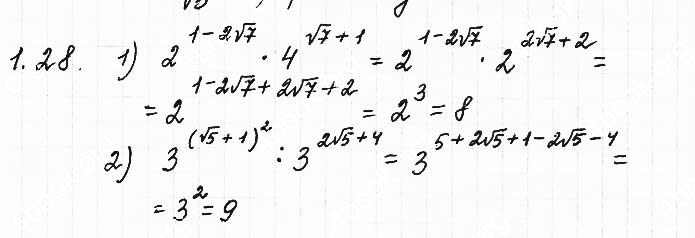 1.28. 1) 2^(1-2√7) · 4^(√7+1) = 2^(1-2√7) · 2^(2√7+2) =
= 2^(1-2√7+2√7+2) = 2^3 = 8
2) 3^((√5+1)^2) : 3^(2√5+4) = 3^(5+2√5+1-2√5-4) =
= 3^2 = 9